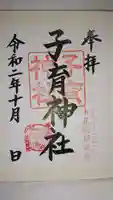 奉拝
子育神社
令和二年十月 日